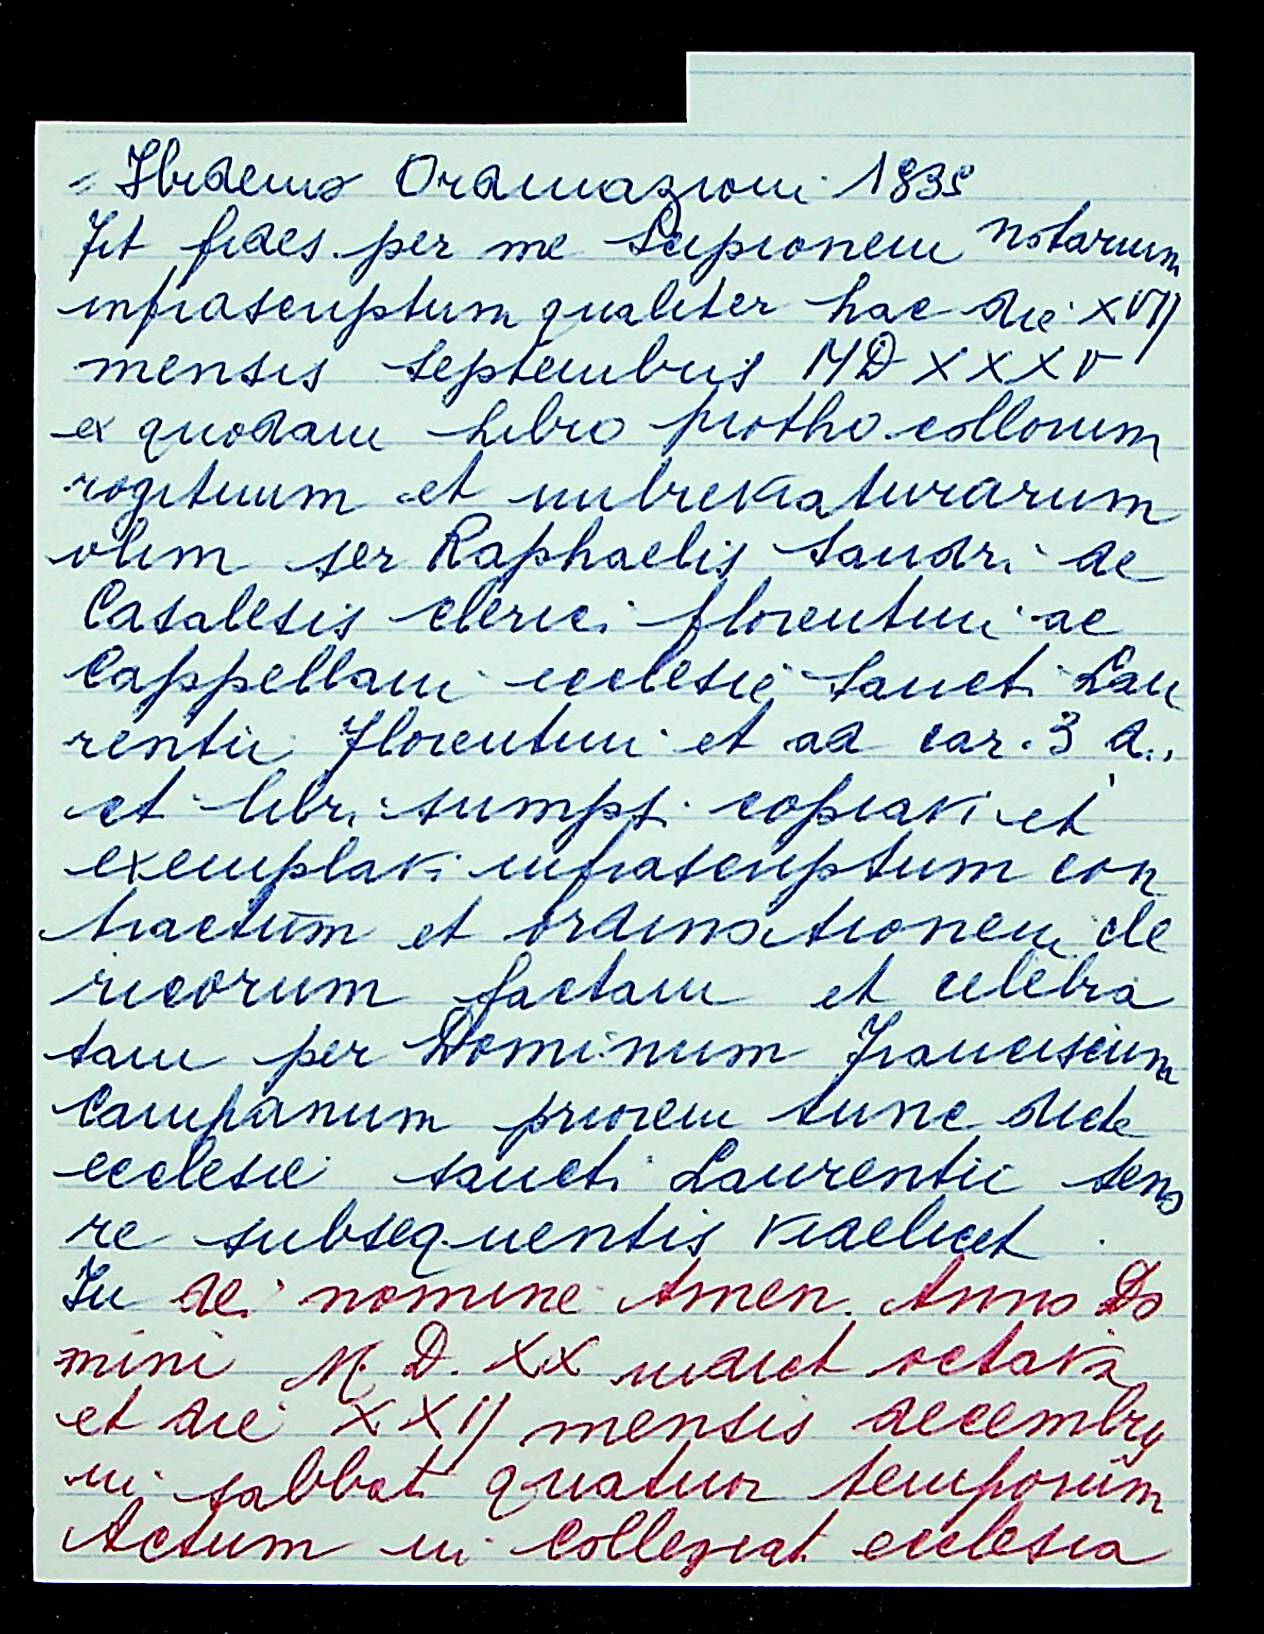 = Ibidem Ordinazioni 1535
Fit fides per me Scipionem notarium
infrascriptum qualiter hac die XVII
mensis septembris MDXXXV
ex quodam libro prothocollorum
rogituum et imbreviaturarum
olim ser Raphaelis Sandri de
Casalesis clerici florentini ac
Cappellani ecclesie sancti Lau
rentii Florentini et ad car. 3 d..
et libri sumpsi copiavi et
exemplavi infrascriptum con
tractum et ordinationem cle
ricorum factam et celebra
tam per Dominum Franciscum
Campanum priorem tunc dicte
ecclesie sancti Laurentii teno
re subsequentis videlicet
In dei nomine Amen. Anno Do
mini M. D. XX indict octava
et die XXII mensis decembry
in sabbati quatuor temporum
Actum in Collegiat ecclesia